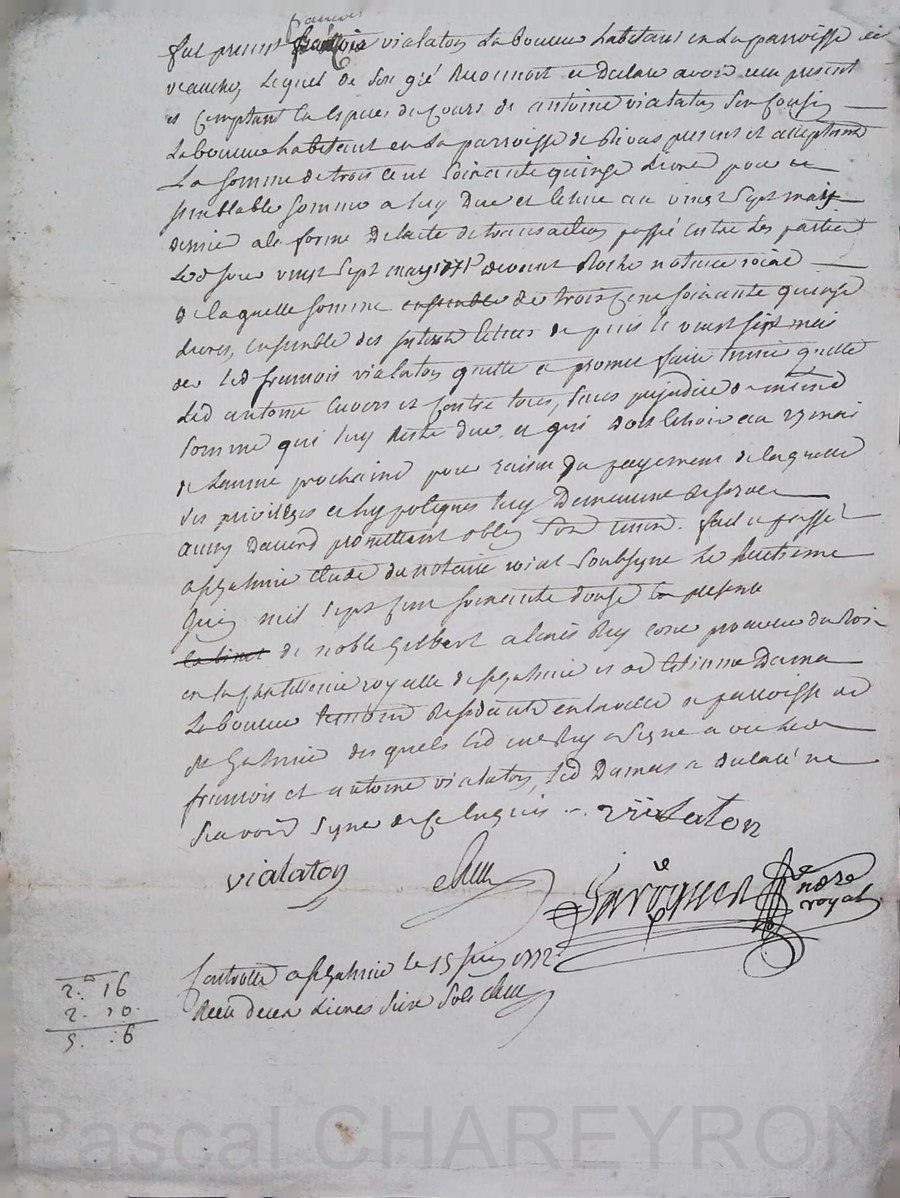 françois
fut present françois vialaton Laboureur habitant en La parroisse de
veauche, Lequel de Son gré Reconnoit et declare avoir reçu present
et Comptant En Especes de Cours de antoine vialaton Son Cousin
Laboureur habitant en La parroisse de Rivas present et acceptant
La Somme de trois Cent Soixante quinze Livres pour
semblable Somme a luy due et Echue au vingt Sept may
dernier a la forme De lacte de transaction passé entre Les parties
Led jour vingt Sept may 1771 devant Roche notaire roial
de Laquelle Somme ensemble de trois Cent soixante quinze
Livres, ensemble des interets Echus depuis le vingt sept mai
der Led francois vialaton quitte et promet faire tenir quitte
Led antoine Envers et Contre tous, Sans prejudice de meme
Somme qui luy Reste due et qui doit Echoir au 27 mai
de Lannee prochaine pour raison du payement de Laquelle
Les privileges et hypoteques luy Demeurent
ainsy Daccord promettant oblig Fait et passé
a St Galmier Etude du notaire roial Soubsigné Le huitieme
Juin mil Sept Cent soixante douze en presence
Cabinet de noble Gilbert alexis Rey procureur du Roi
en la Chatellenie royalle de St Galmier et de Etienne Damas
Laboureur Residants en la ville et parroisse de
St Galmier des quels Led Rey a Signe avec Les
francois et antoine vialaton, Led Damas a declaré ne
Scavoir Signer de Ce Enquis vialaton
vialaton
nore
royal
Controllé a St Galmier le 15 juin 1772
Reçu deux Livres Sols
2. 16
2. 10.
5. :6
Pascal CHAREYRON